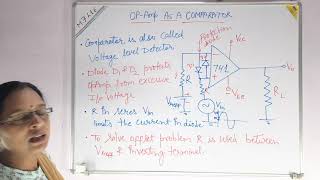 M7 L1
OP-Amp As A COMPARATOR
• Comparator is also called
Voltage level Detector
• Diode D1 & D2 protects
opAmp from excessive
I/p Voltage
• R in series Vin
limits the current in diode
• To solve offset problem R is used between
& Inverting terminal.
Protection
diode
+Vcc
741
-VEE
Vo
RL
R
R
Vin